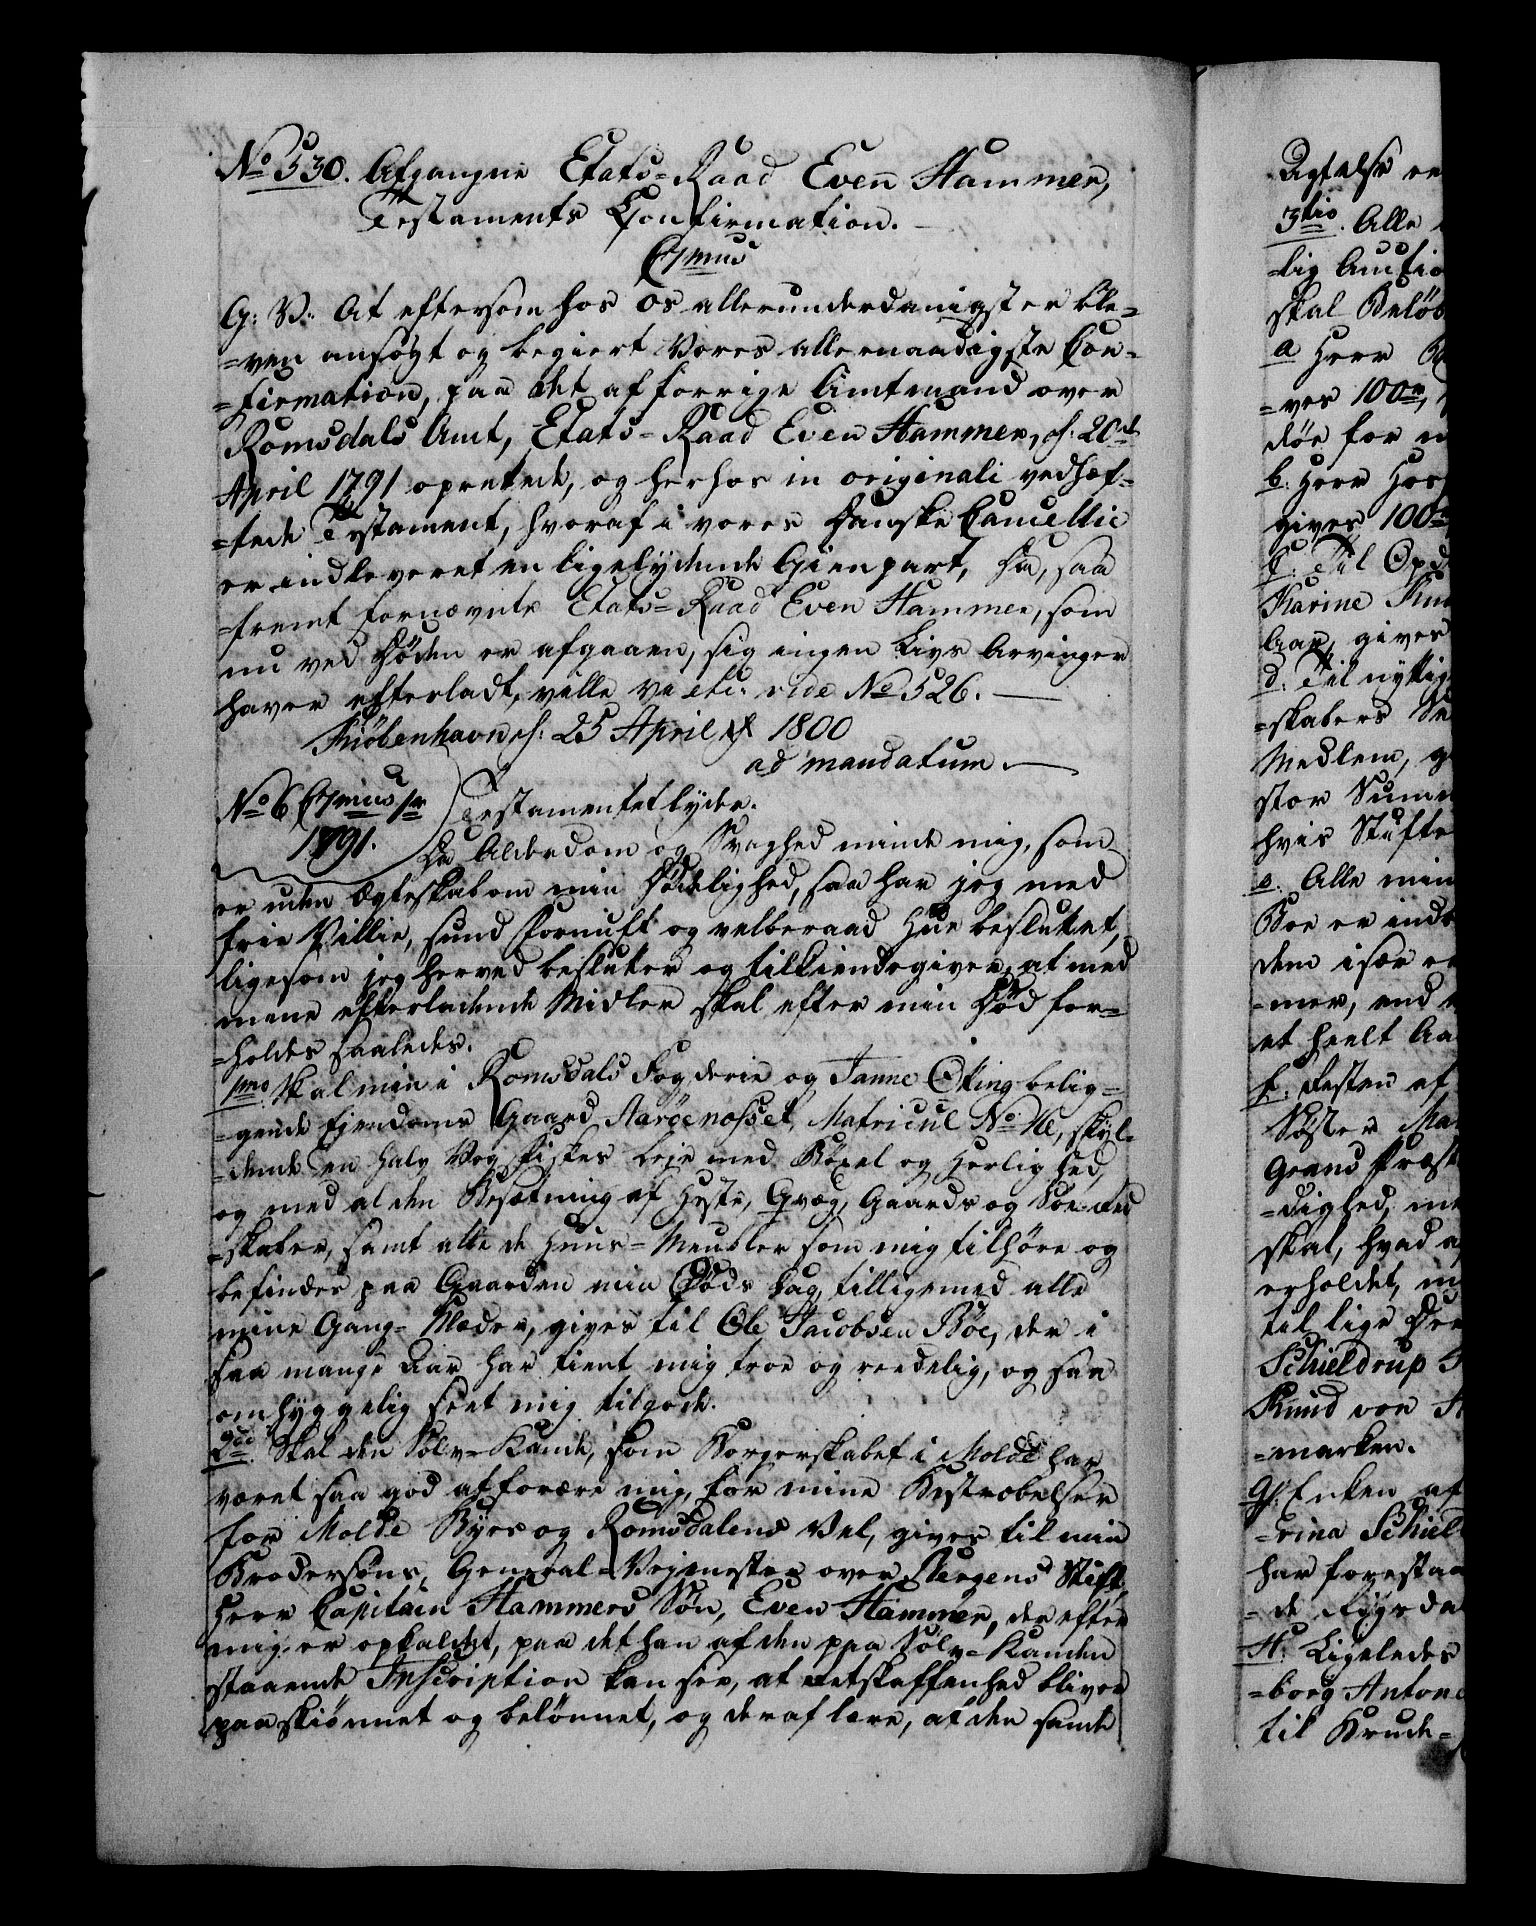 No 530. Afgangne Etats-Raad Even Hammer,
Testaments Confirmation.
G: V: At eftersom hos os allerunderdanigst er ble-
-ven ansøgt og begiert Vores allernaadigste Con-
-firmation, paa det af forrige Amtmand over
Romsdals Amt, Etats-Raad Even Hammer, d: 20de
April 1791 oprettede, og herhos in originali vedhæf-
-tede Testament, hvoraf i vores Danske Cancellie
er indleveret en ligelydende Gienpart, Da, saa
-fremt fornævnte Etats-Raad Even Hammer, som
nu ved Døden er afgaaen, sig ingen Livs Arvinger
haver efterladt, ville vi etc. vide No 526.
Kiøbenhavn d: 25 April 1800
ad mandatum.
No 6
1791.
Testamentet lyder.
Da Alderdom og Svaghed minde mig, som
er uden Ægteskab om min Dødelighed, saa har jeg med
frie Villie, sund Fornuft og velberaad Hue besluttet,
ligesom jeg herved beslutter og tilkiendegiver, at med
mine efterladende Midler skal efter min Død for-
-holdes saaledes.
1mo Skal min i Romsdals Fogderie og Tanne Otting belig-
-gende Ejendoms Gaard Aarøenæsset, Matricul No 46, skyl-
-dende en halv Vog Fiskes Leje med Böxel og Herlighed,
og med al den Besætning af Heste, Qvæg, Gaards og Söe-Red
-skaber, samt alle de Huus-Meubler som mig tilhöre og
befindes paa Gaarden min Döds Dag, tilligemed alle
mine Gang-Klæder, gives til Ole Jacobsen Böe, der i
saa mange Aar har tient mig troe og reedelig, og saa
omhyggelig seet mig tilgode.
2do Skal den Sölv-Kande, som Borgerskabet i Molde har
været saa god at forære mig, for mine Bestræbelser
for Molde Byes og Romsdalens Vel, gives til min
Brodersöns, General-Vejmester over Bergens Stift
Herr Capitain Hammers Sön, Even Hammer, der efter
mig er opkaldet, paa det han af den paa Sölv-Kanden
staaende Inscription kan see, at Retskaffenhed bliver
paaskiönnet og belönnet, og deraf lære, at den samme
Agtelse
3tio. Alle
-lig Auctio
skal Belöb
a Herr
-ves 100
döe for
b. Herr
gives 100
c. Til Opd
Karine
Aar, gives
d. Til nyttig
-skabers
Medlem,
stor Summ
hvis Stifte
e. Alle min
Boe er
dem især
-mer, end
et heelt Aa
f. Resten af
Söster
Grand Præst
-dighed,
skal, hvad
erholdet,
til lige
Schieldrup
Knud von
-marken.
G. Enken af
-rina Schiel
har forestaa
-de Rigsda
H. Ligeledes
-borg Anton
til Krude-